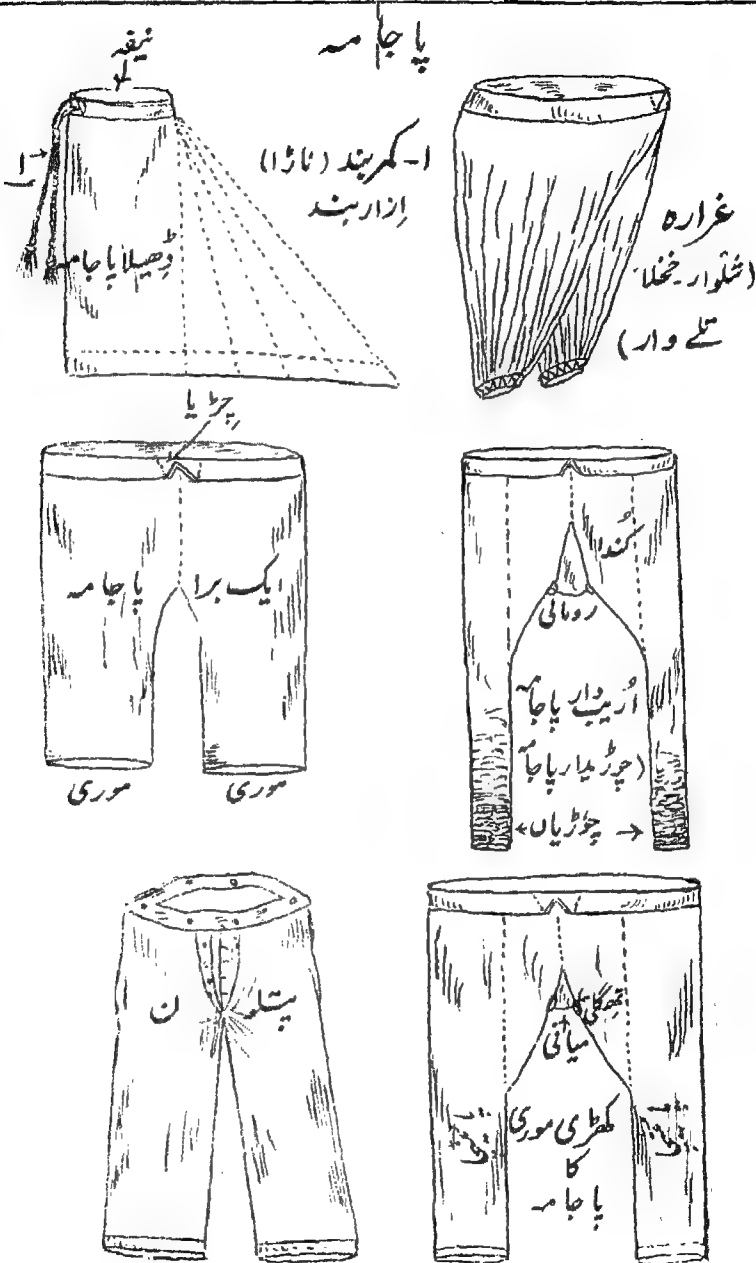 پاجامہ
نیفہ
۱
۱-کمربند (ناڑا)
اِزاربند
ڈھیلا پاجامہ
غرارہ
(شلوار-خنخلا
تلے وار)
چڑیا
ایک برا پاجامہ
موری موری
کُندا
رومالی
اُریب دار پاجامہ
(چوڑیدار پاجامہ
چوڑیاں
پتلون
میانی
کھڑی موری
کا
پاجامہ